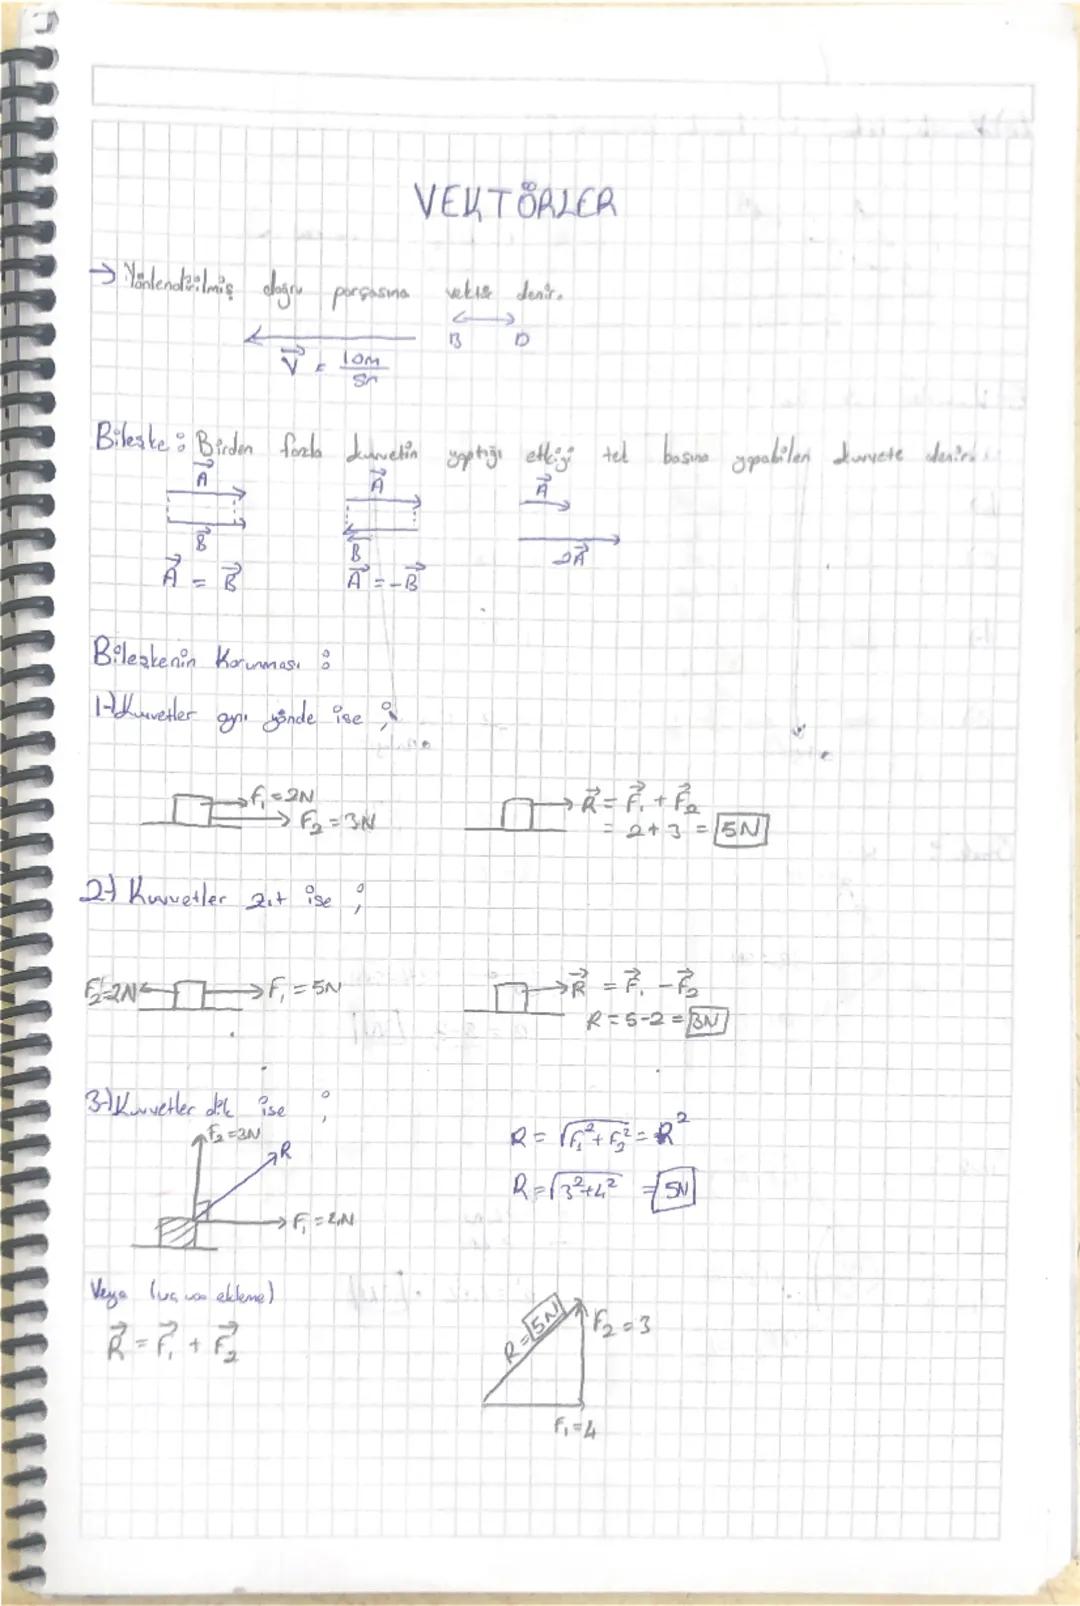 VEKTÖRLER
→ Yönlendirilmiş doğru parçasına vektör denir.
B D
V = 10m/sn
Bileşke : Birden fazla kuvvetin yaptığı etkiyi tek başına yapabilen kuvvete denir.
A A A
B B 2A
A = B A = -B
Bileşkenin Korunması :
1-) Kuvvetler aynı yönde ise ;
F₁ = 2N R = F₁ + F₂
F₂ = 3N = 2+3 = 5N
2-) Kuvvetler zıt ise ;
F₂=2N F₁ = 5N R = F₁ - F₂
R = 5-2 = 3N
3-) Kuvvetler dik ise ;
F₂=3N R R = √F₁²+F₂² = R²
R = √3²+4² = 5N
F₁ = 4N
Veya (uç uca ekleme)
R = 5N F₂ = 3
R = F₁ + F₂
F₁ = 4